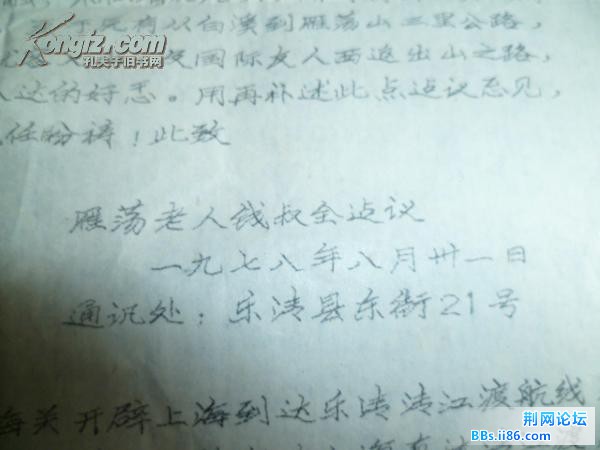 于死有以白溪到雁荡山二里公路，
国际友人西边出山之路，
达的好志。用再补述此点边议忘见，
任盼祷！此致
雁荡老人钱叔全边议
一九七八年八月卅一日
通讯处：乐清县东街21号
海关开辟上海到达乐清清江渡航线
孔夫子旧书网
KONGFZ.COM
荆网论坛
BBs.ii86.com